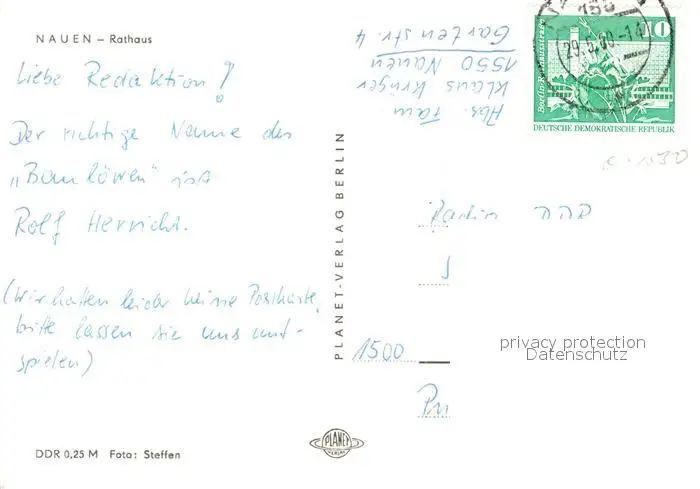 NAUEN – Rathaus
Liebe Redaktion!
Der richtige Name des
„Baulöwen" ist
Rolf Herricht.
(Wir hatten leider keine Postkarte,
bitte lassen sie uns mit-
spielen)
DDR 0,25 M Foto: Steffen
PLANET-VERLAG BERLIN
PLANET
VERLAG
Abs. Fam
Klaus Krüger
1550 Nauen
Gartenstr. 4
155
29.5.80-14
10
Berlin-Rathausstraße
DEUTSCHE DEMOKRATISCHE REPUBLIK
Radio DDR
J
1500
privacy protection
Datenschutz